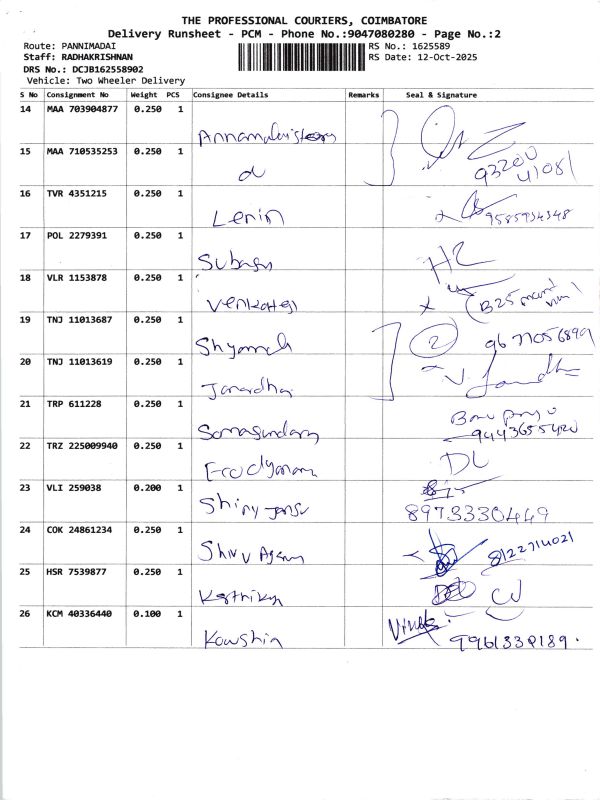 THE PROFESSIONAL COURIERS, COIMBATORE
Delivery Runsheet - PCM - Phone No.:9047080280 - Page No.:2
Route: PANNIMADAI
RS No.: 1625589
Staff: RADHAKRISHNAN
RS Date: 12-Oct-2025
DRS No.: DCJB162558902
Vehicle: Two Wheeler Delivery
S No Consignment No Weight PCS Consignee Details Remarks Seal & Signature
14 MAA 703904877 0.250 1
15 MAA 710535253 0.250 1
93200
41081
16 TVR 4351215 0.250 1 Lenin
17 POL 2279391 0.250 1
18 VLR 1153878 0.250 1 Venkates
19 TNJ 11013687 0.250 1 2
20 TNJ 11013619 0.250 1 Janardha
21 TRP 611228 0.250 1 Somasundaram
9443655420
22 TRZ 225009940 0.250 1 DL
23 VLI 259038 0.200 1
8973330449
24 COK 24861234 0.250 1 8122714021
25 HSR 7539877 0.250 1 Karthikn
26 KCM 40336440 0.100 1 Kowshin